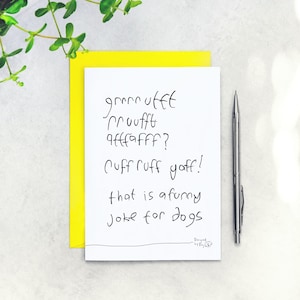 grrrrufft
rruufft
affafff?
ruffruff yaff!
that is a funny
joke for dogs